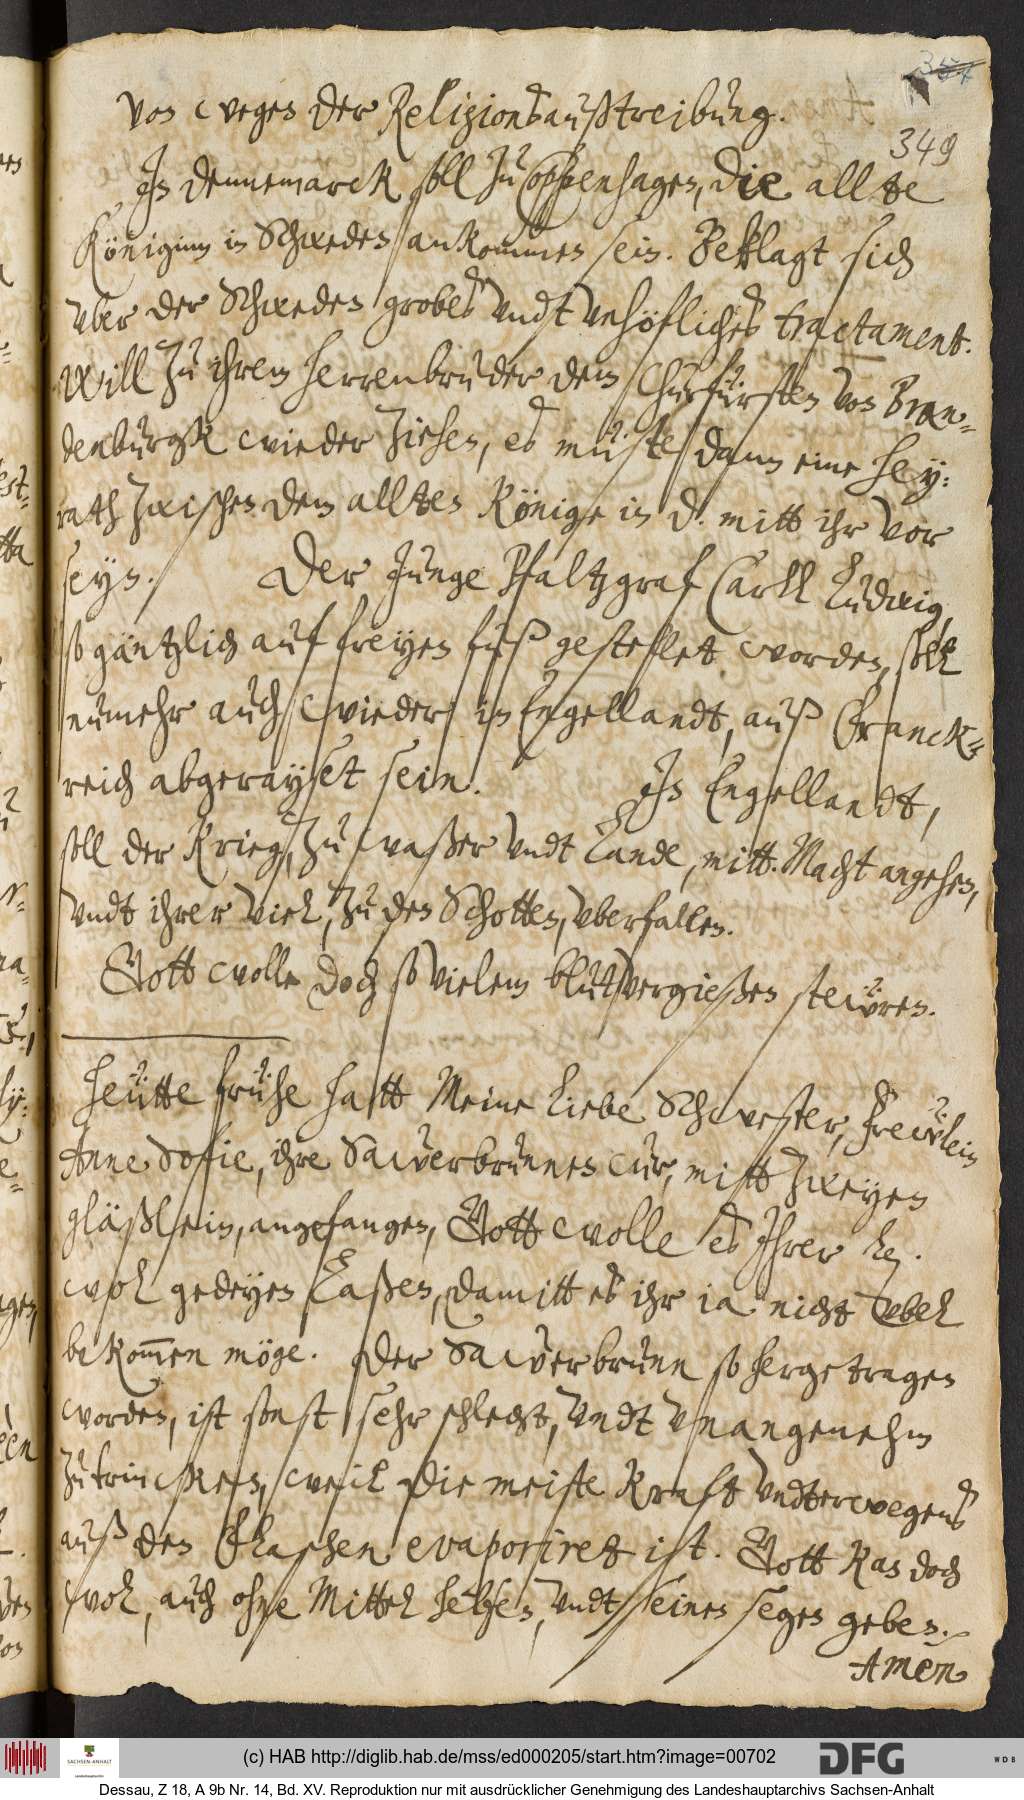 351
349
von wegen der Religionsaußtreibung.
In Dennemarck soll zu Coppenhagen, die allte
Königinn in Schweden ankommen sein. Beklagt sich
vber der Schweden grobes vndt vnhöfliches tractament.
Will zu ihrem herrenbruder dem Churfürsten von Bran-
denburgk wieder ziehen, es müste dann eine hey-
rath zwischen dem allten Könige in D. mitt ihr vor
seyn. Der Junge Pfaltzgraf Carll Ludwig,
so gäntzlich auf freyen fuß gestellet worden, soll
numehr auch wieder in Engellandt, auß Franck-
reich abgerayset sein. In Engellandt,
soll der Krieg, zu waßer vndt Lande, mitt Macht angehen,
vndt ihrer viel, zu den Schotten, vberfallen.
Gott wolle doch so vielem blutvergießen stewren.
Heütte frühe hatt Meine liebe Schwester, Frewlein
Anne Sofie, ihre Sawerbrunnen Cur, mitt zweyen
gläßlein, angefangen, Gott wolle es Ihrer L.
wol gedeyen laßen, damitt es ihr ia nicht vbel
bekommen möge. Der Sawerbrunn so hergetragen
worden, ist sonst sehr schlecht, vndt vnangenehm
zu trincken, weil die meiste Kraft vndterwegens
auß den Flaschen evaporiret ist. Gott kan doch
wol, auch ohne Mittel helfen, vndt seinen segen geben.
Amen
(c) HAB http://diglib.hab.de/mss/ed000205/start.htm?image=00702
SACHSEN-ANHALT
DFG
WDB
Dessau, Z 18, A 9b Nr. 14, Bd. XV. Reproduktion nur mit ausdrücklicher Genehmigung des Landeshauptarchivs Sachsen-Anhalt